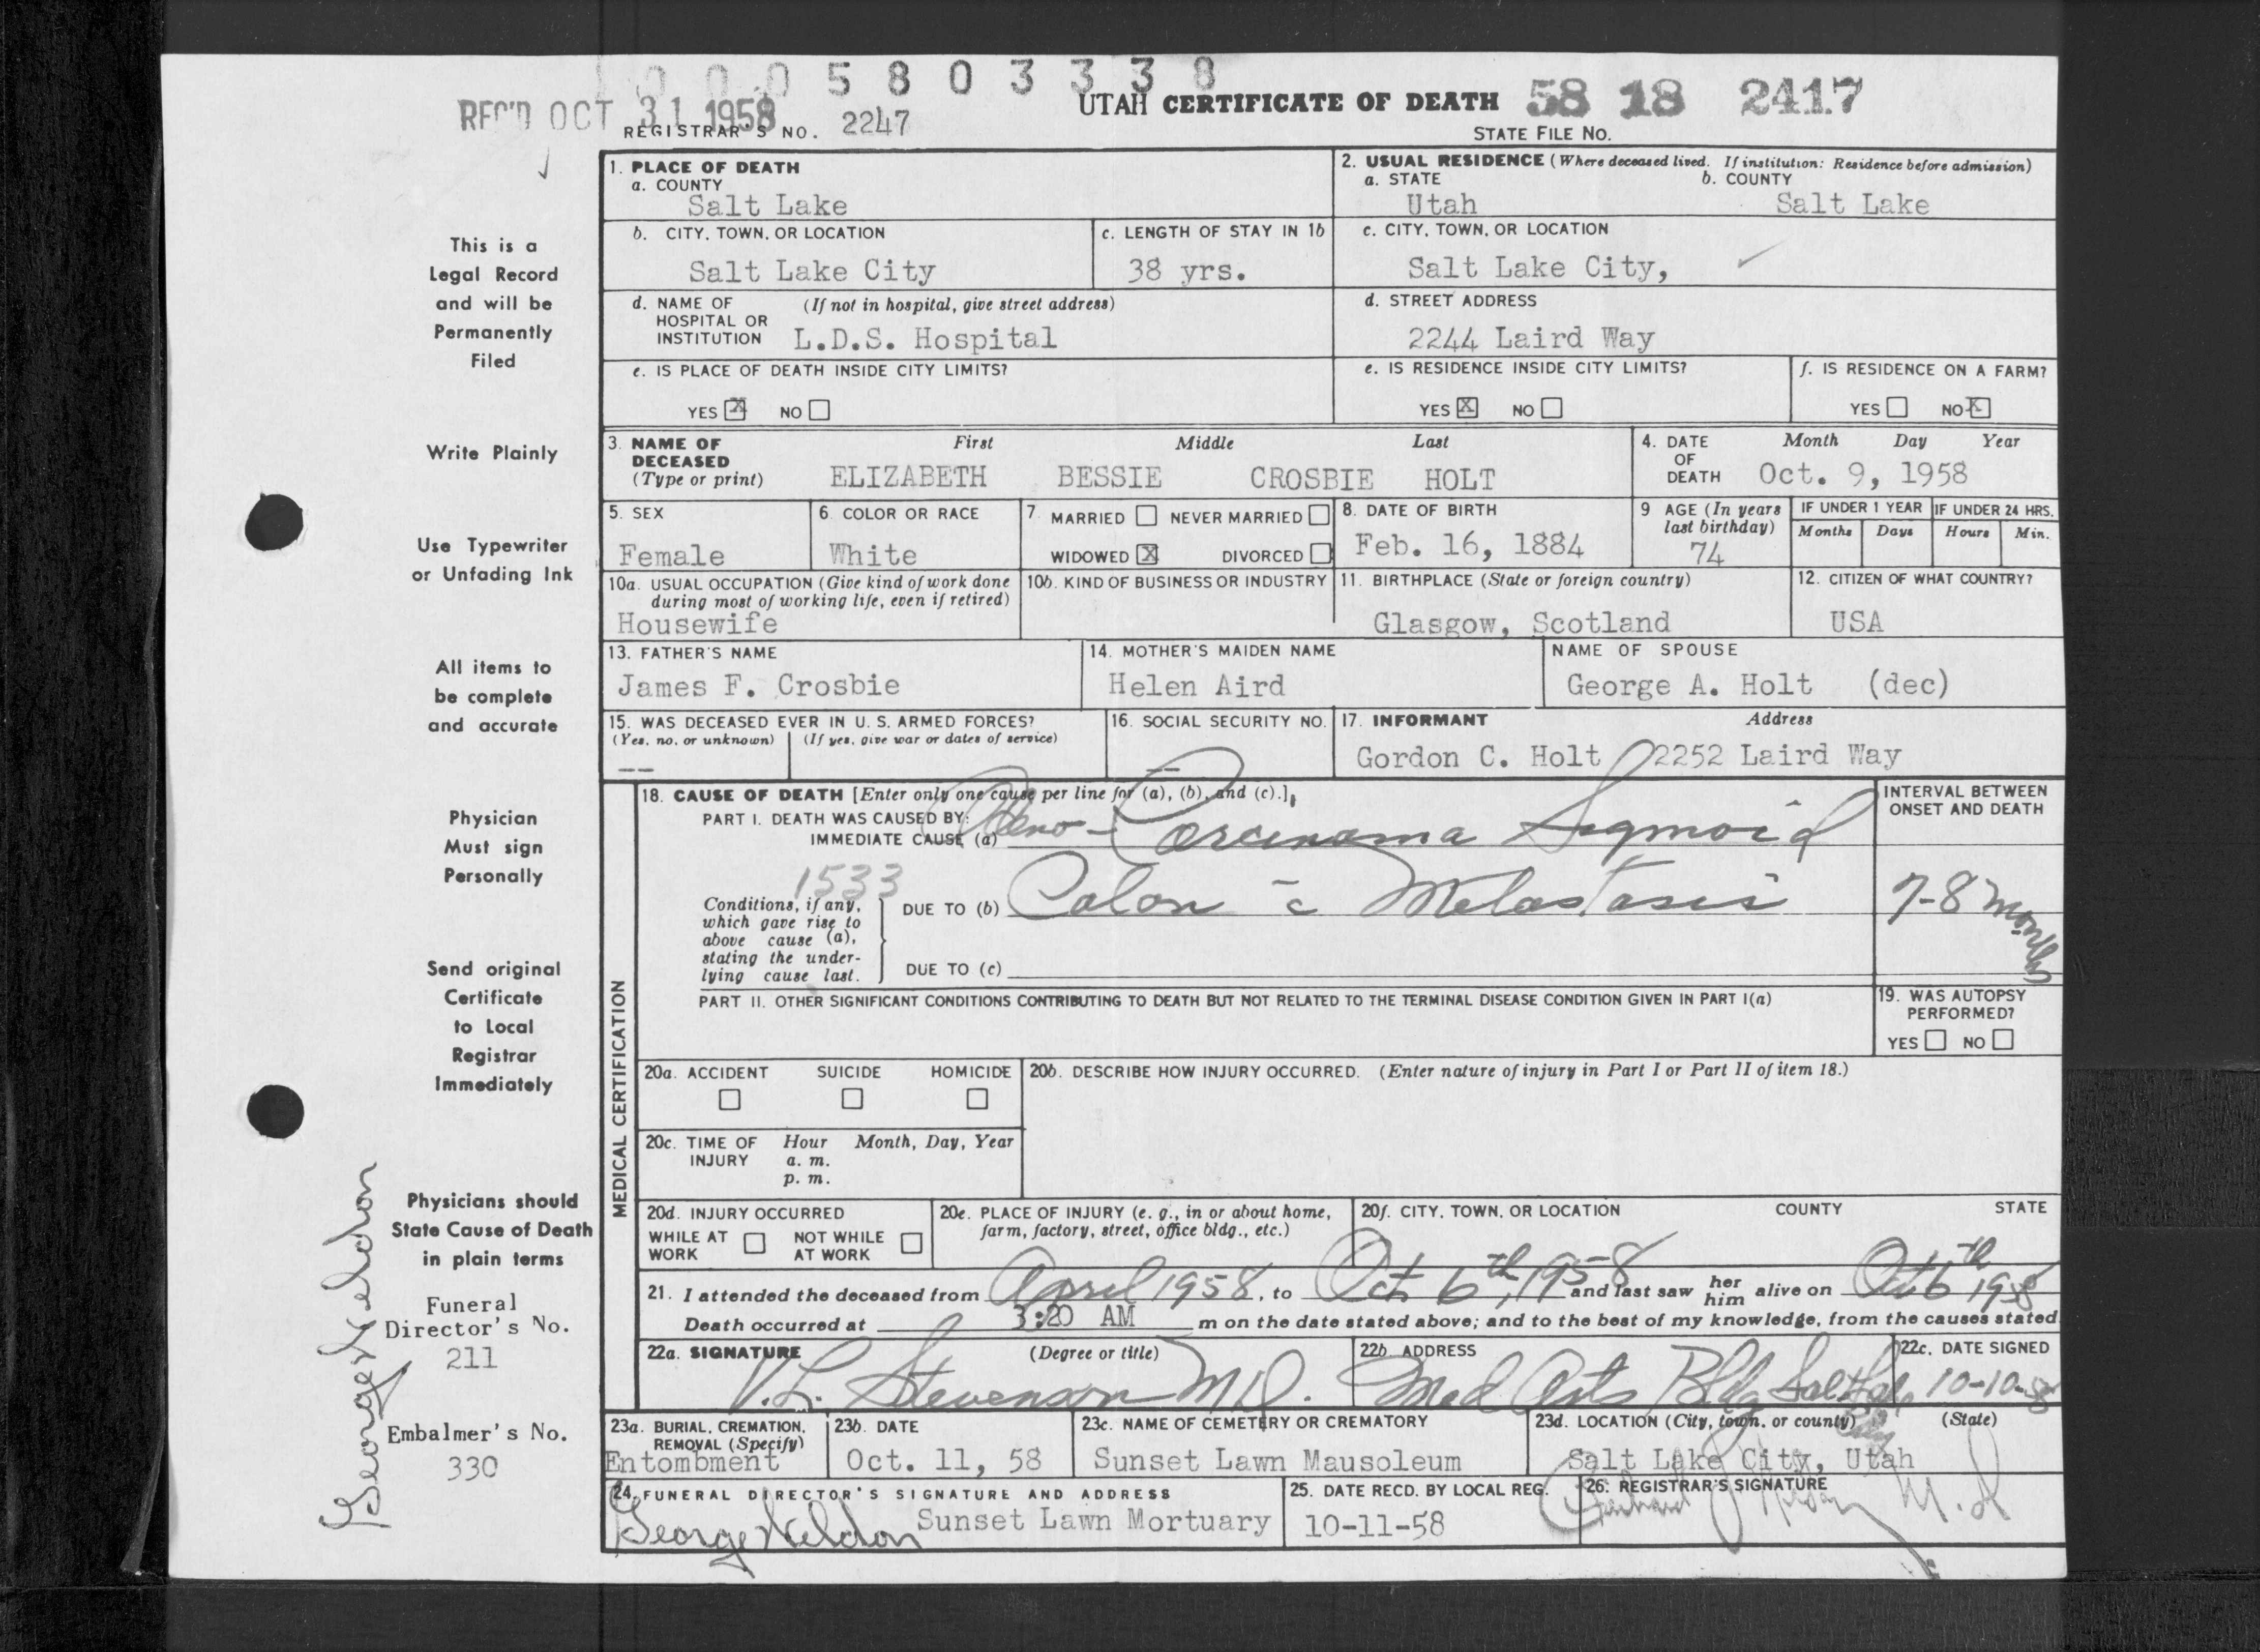 0 0 0 5 8 0 3 3 3 8
REC'D OCT 31 1958
REGISTRAR'S NO. 2247
UTAH CERTIFICATE OF DEATH 58 18 2417
STATE FILE NO.
This is a
Legal Record
and will be
Permanently
Filed
Write Plainly
Use Typewriter
or Unfading Ink
All items to
be complete
and accurate
Physician
Must sign
Personally
Send original
Certificate
to Local
Registrar
Immediately
Physicians should
State Cause of Death
in plain terms
Funeral
Director's No.
211
Embalmer's No.
330
George Weldon
1. PLACE OF DEATH
a. COUNTY
Salt Lake
2. USUAL RESIDENCE (Where deceased lived. If institution: Residence before admission)
a. STATE b. COUNTY
Utah Salt Lake
b. CITY, TOWN, OR LOCATION
Salt Lake City
c. LENGTH OF STAY IN 1b
38 yrs.
c. CITY, TOWN, OR LOCATION
Salt Lake City,
d. NAME OF (If not in hospital, give street address)
HOSPITAL OR
INSTITUTION L.D.S. Hospital
d. STREET ADDRESS
2244 Laird Way
e. IS PLACE OF DEATH INSIDE CITY LIMITS?
YES X NO
e. IS RESIDENCE INSIDE CITY LIMITS?
YES X NO
f. IS RESIDENCE ON A FARM?
YES NO X
3. NAME OF First Middle Last
DECEASED
(Type or print) ELIZABETH BESSIE CROSBIE HOLT
4. DATE Month Day Year
OF
DEATH Oct. 9, 1958
5. SEX
Female
6. COLOR OR RACE
White
7. MARRIED NEVER MARRIED
WIDOWED X DIVORCED
8. DATE OF BIRTH
Feb. 16, 1884
9 AGE (In years
last birthday)
74
IF UNDER 1 YEAR IF UNDER 24 HRS.
Months Days Hours Min.
10a. USUAL OCCUPATION (Give kind of work done
during most of working life, even if retired)
Housewife
10b. KIND OF BUSINESS OR INDUSTRY
11. BIRTHPLACE (State or foreign country)
Glasgow, Scotland
12. CITIZEN OF WHAT COUNTRY?
USA
13. FATHER'S NAME
James F. Crosbie
14. MOTHER'S MAIDEN NAME
Helen Aird
NAME OF SPOUSE
George A. Holt (dec)
15. WAS DECEASED EVER IN U. S. ARMED FORCES?
(Yes, no, or unknown) (If yes, give war or dates of service)
--
16. SOCIAL SECURITY NO.
--
17. INFORMANT Address
Gordon C. Holt 2252 Laird Way
MEDICAL CERTIFICATION
18. CAUSE OF DEATH [Enter only one cause per line for (a), (b), and (c).]
PART I. DEATH WAS CAUSED BY:
IMMEDIATE CAUSE (a) Adeno-Carcinoma Sigmoid
1533
Conditions, if any,
which gave rise to
above cause (a),
stating the under-
lying cause last.
DUE TO (b) Colon c̄ Metastasis
DUE TO (c)
INTERVAL BETWEEN
ONSET AND DEATH
7-8 months
PART II. OTHER SIGNIFICANT CONDITIONS CONTRIBUTING TO DEATH BUT NOT RELATED TO THE TERMINAL DISEASE CONDITION GIVEN IN PART I(a)
19. WAS AUTOPSY
PERFORMED?
YES NO
20a. ACCIDENT SUICIDE HOMICIDE
20b. DESCRIBE HOW INJURY OCCURRED. (Enter nature of injury in Part I or Part II of item 18.)
20c. TIME OF Hour Month, Day, Year
INJURY a. m.
p. m.
20d. INJURY OCCURRED
WHILE AT NOT WHILE
WORK AT WORK
20e. PLACE OF INJURY (e. g., in or about home,
farm, factory, street, office bldg., etc.)
20f. CITY, TOWN, OR LOCATION COUNTY STATE
21. I attended the deceased from April 1958, to Oct 6th, 1958 and last saw her him alive on Oct 6th 1958
Death occurred at 3:20 AM m on the date stated above; and to the best of my knowledge, from the causes stated
22a. SIGNATURE (Degree or title)
V.L. Stevenson MD.
22b. ADDRESS
Med Arts Bldg Salt Lake City
22c. DATE SIGNED
10-10-58
23a. BURIAL, CREMATION,
REMOVAL (Specify)
Entombment
23b. DATE
Oct. 11, 58
23c. NAME OF CEMETERY OR CREMATORY
Sunset Lawn Mausoleum
23d. LOCATION (City, town, or county) (State)
Salt Lake City, Utah
24. FUNERAL DIRECTOR'S SIGNATURE AND ADDRESS
George Weldon Sunset Lawn Mortuary
25. DATE RECD. BY LOCAL REG.
10-11-58
26. REGISTRAR'S SIGNATURE
M.D